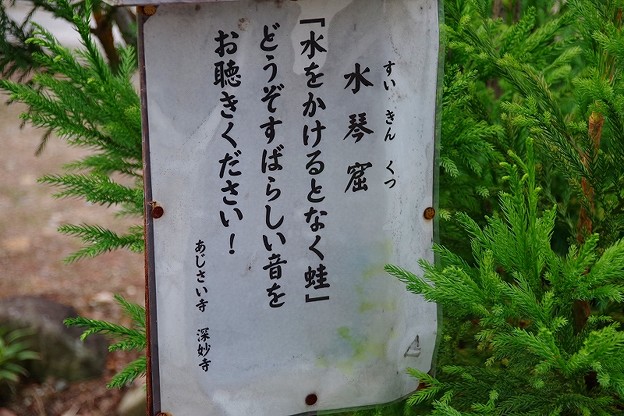 すいきんくつ
水琴窟
『水をかけるとなく蛙』
どうぞすばらしい音を
お聴きください！
あじさい寺　深妙寺